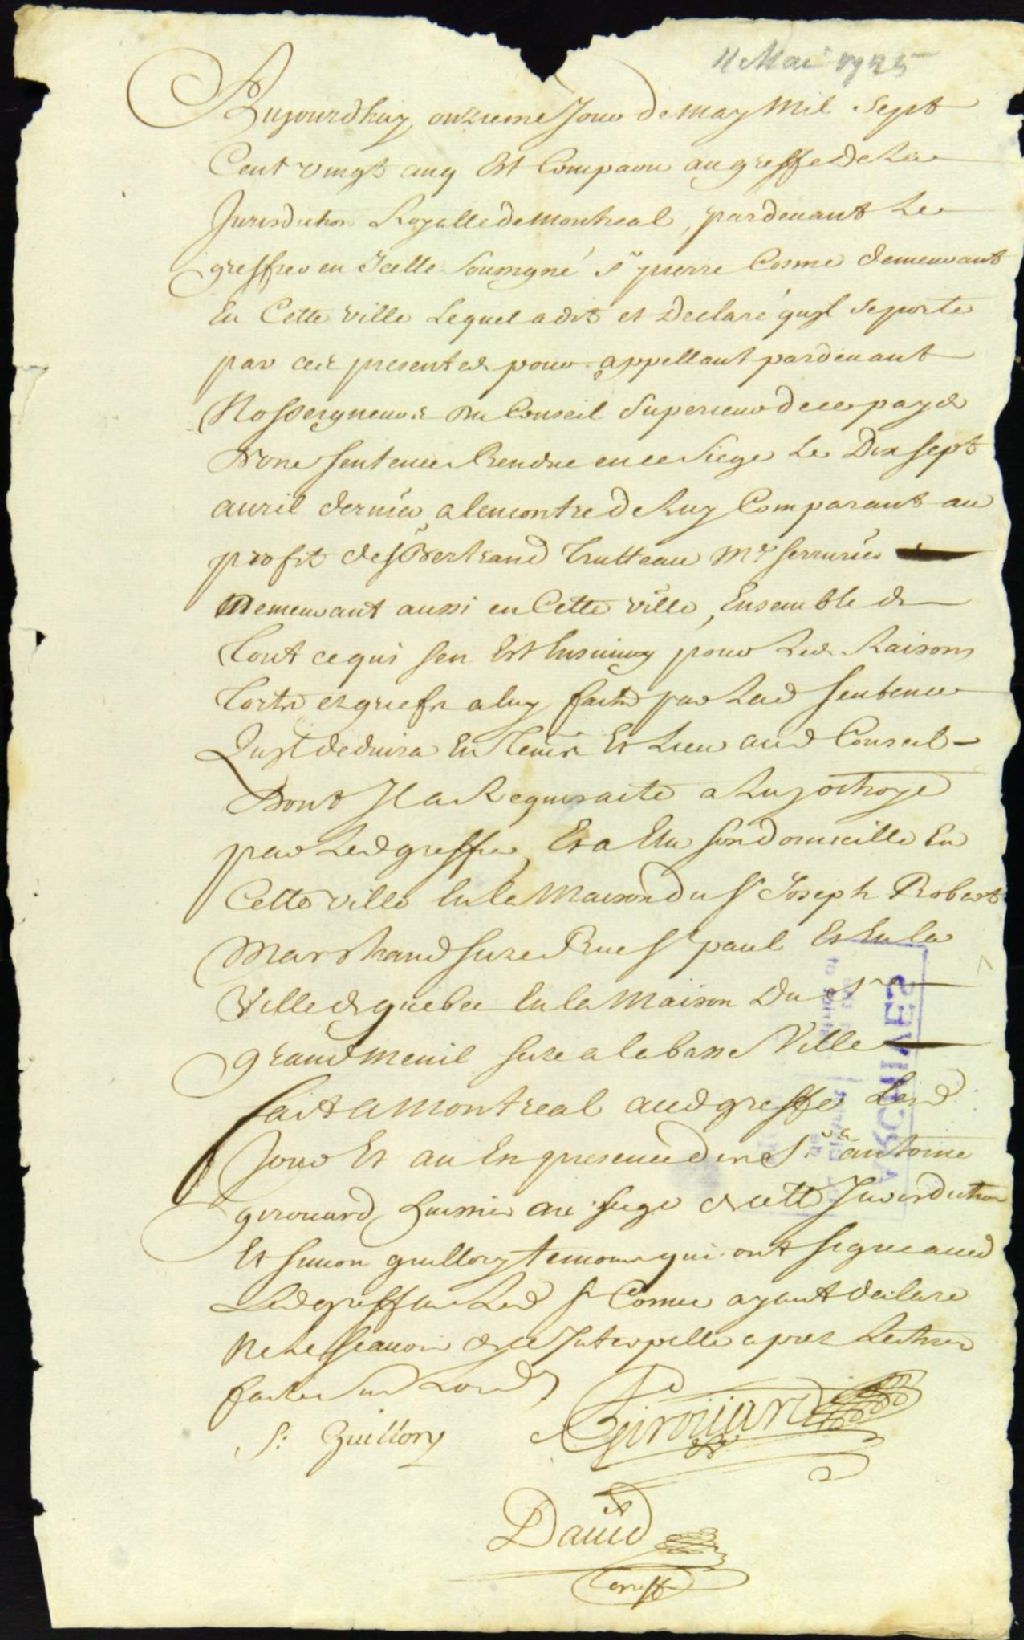 11 Mai 1725
Aujourdhuy onzieme Jour de may Mil Sept
Cent vingt cinq Est Comparu au greffe de La
Jurisdiction Royalle de Montreal, pardevant Le
greffier en Icelle Soussigné Sr pierre Cosme demeurant
En Cette ville Lequel a dit et Declaré quyl se porte
par ces presentes pour appellant pardevant
Nosseigneurs du Conseil Superieur de ce pays
D'une sentence Rendue en ce siege Le Dix sept
avril dernier a lencontre de Luy Comparant au
profit de Bertrand Trutteau Mre serrurier
Demeurant aussi en Cette ville, Ensemble de
Tout ce qui sen Est Ensuivy pour Les Raisons
Torts et griefs a luy faits par Lad sentence
Quyl deduira En Tems Et Lieu aud Conseil
Dont Il a Requis acte a Luy octroyé
par Led greffier, Et a Elu son domicille En
Cette ville En la Maison du Sr Joseph Robert
Marchand size Rue St paul Et En la
Ville de quebec En la Maison Du Sr
grandmenil size a la basse Ville
Fait a Montreal aud greffe Lesd
Jour Et an En presence des Srs antoine
girouard huissier au siege de cette Jurisdiction
Et simon guillory temoins qui ont signé avec
Led greffier Led Sr Cosme ayant declaré
Ne Le sçavoir de ce Interpellé apres Lecture
faite
S: Guillory
Girouard
David
Greff
ARCHIVES